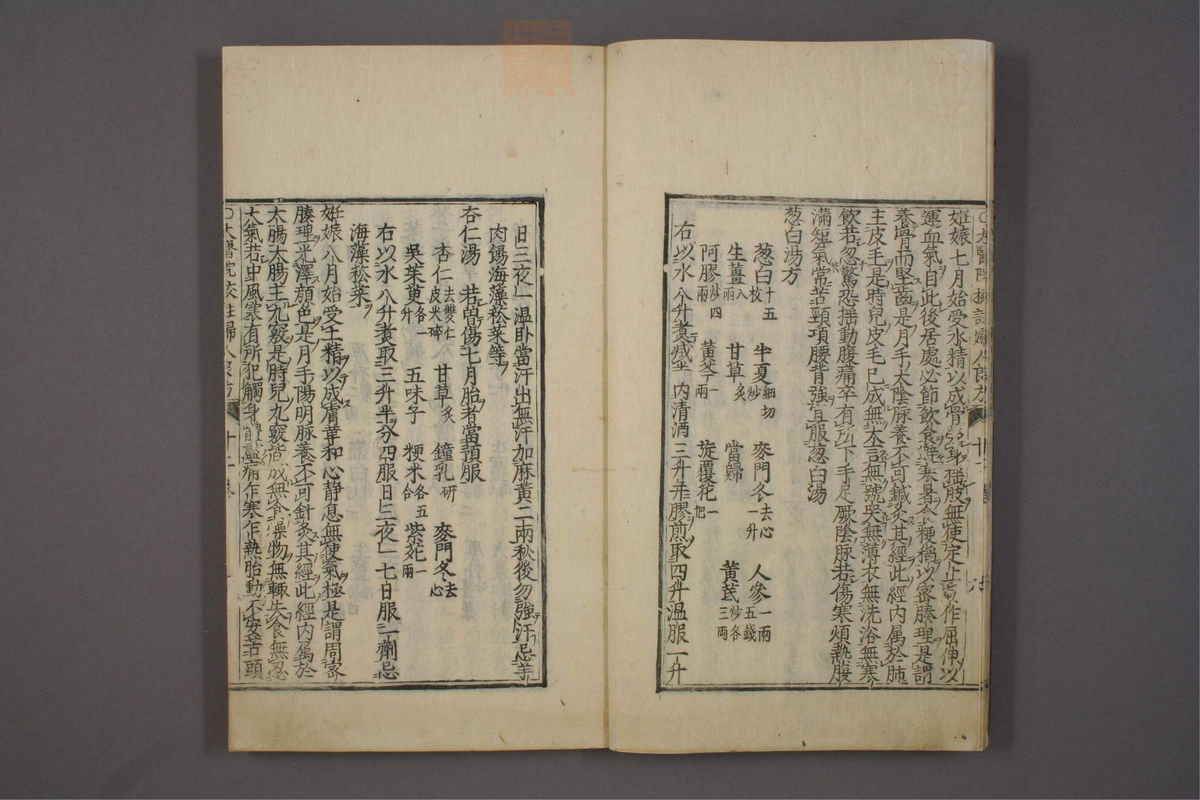 ○太醫院校註婦人良方
妊娠七月始受水精以成骨勞身搖肢無使定止動作屈伸以
運血氣自此後居處必節飲食避寒暑食粳稻以密腠理是謂
養骨而堅齒是月手太陰脉養不可鍼灸其經此經內屬於肺
主皮毛是時兒皮毛已成無大言無號哭無薄衣無洗浴無寒
飲若忽驚恐搖動腹痛卒有所下手足厥陰脉若傷寒煩熱腹
滿短氣常苦頸項腰背強宜服葱白湯
葱白湯方
葱白十五枚 半夏細切炒 麥門冬去心一升 人參一兩五錢
生薑八兩 甘草炙 當歸 黃芪炒各三兩
阿膠炒四兩 黃芩一兩 旋覆花一把
右以水八升煮減半內清酒三升并膠煎取四升温服一升
日三夜一温卧當汗出無汗加麻黃二兩秋後勿強汗忌羊
肉餳海藻菘菜等
杏仁湯 若曾傷七月胎者當預服
杏仁去雙仁皮尖碎 甘草炙 鐘乳研 麥門冬去心
吳茱萸各一升 五味子 粳米各五合 紫菀一兩
右以水八升煮取三升半分四服日三夜一七日服一劑忌
海藻菘菜
妊娠八月始受土精以成膚革和心靜息無使氣極是謂周密
腠理光澤顔色是月手陽明脉養不可針灸其經此經內屬於
大腸大腸主九竅是時兒九竅皆成無食燥物無輒失食無忍
大氣若中風寒有所犯觸身體盡痛作寒作熱胎動不安苦頭
○太醫院校註婦人良方 十一卷